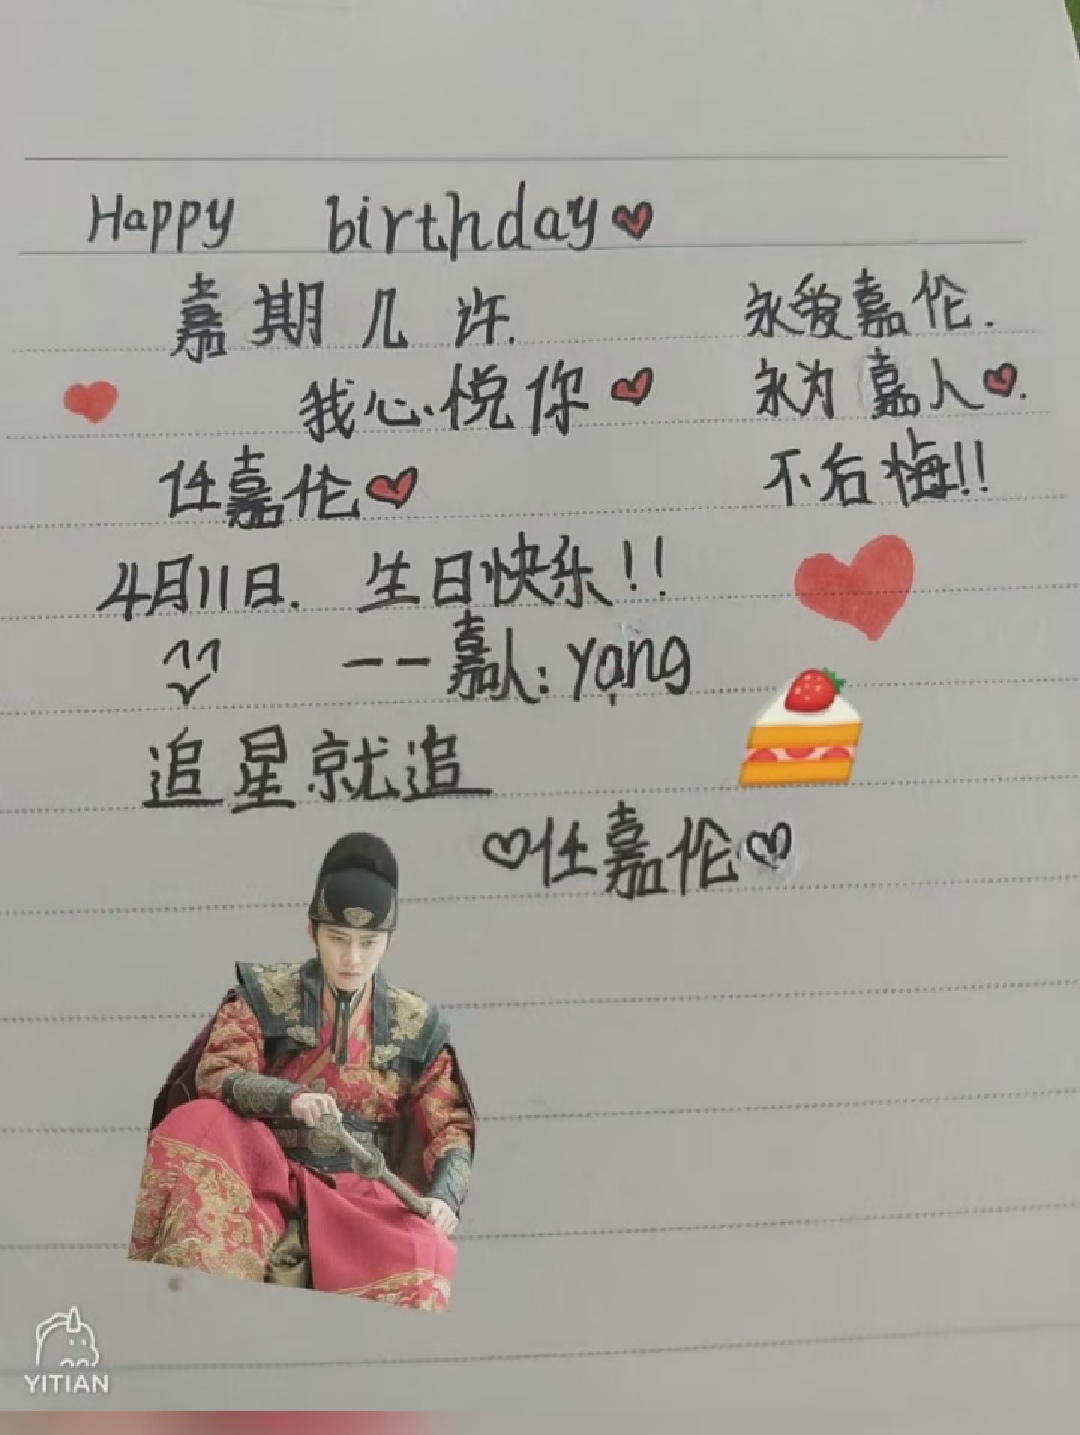 Happy birthday
嘉期几许.
我心悦你
任嘉伦
永爱嘉伦.
永为嘉人.
不后悔!!
4月11日. 生日快乐!!
--嘉人:yang
追星就追
任嘉伦
YITIAN